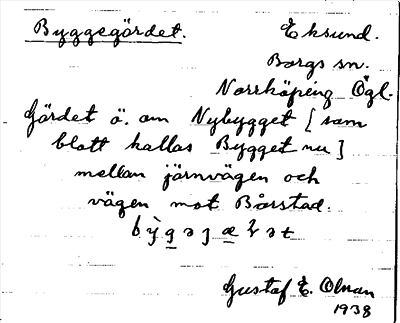 Byggegärdet. Eksund.
Borgs sn.
Norrköping Ögl.
Gärdet ö. om Nybygget [som
blott kallas Bygget nu]
mellan järnvägen och
vägen mot Bårstad.
Gustaf E. Olman
1938